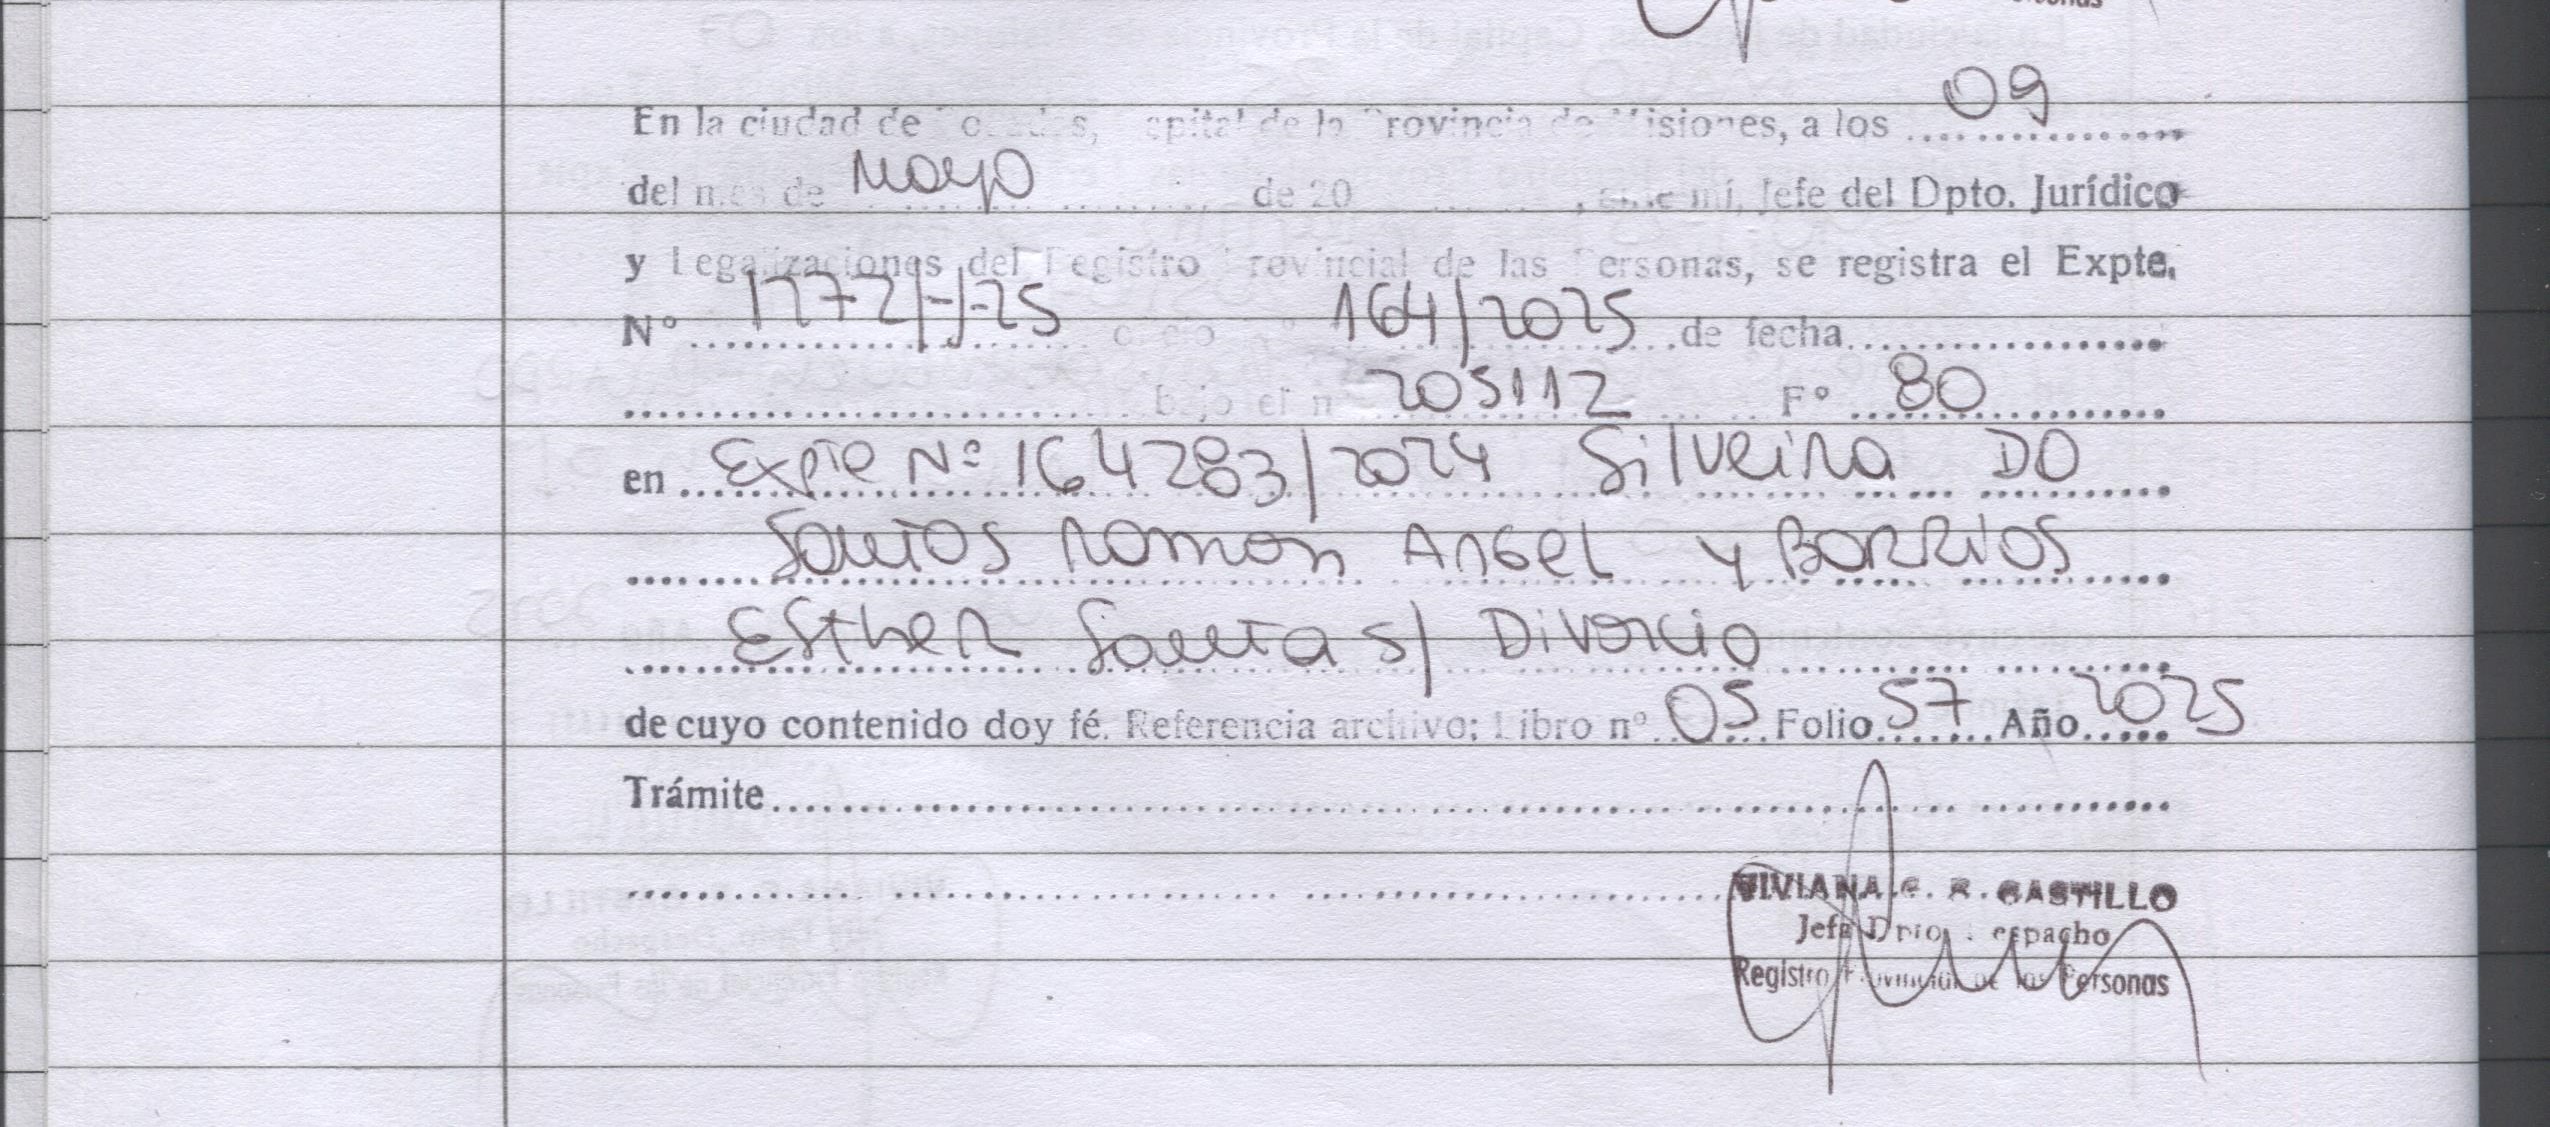 ersonas
En la ciudad de Posadas, Capital de la Provincia de Misiones, a los 09
del mes de Mayo de 20 , ante mí, Jefe del Dpto. Jurídico
y Legalizaciones del Registro Provincial de las Personas, se registra el Expte.
Nº 1272/-/-25 oficio nº 164/2025 de fecha
bajo el nº 205112 Fº 80
en Expte Nº 164283/2024 Silveira DO
Santos Ramon Angel y Barrios
Esther Santa s/ Divorcio
de cuyo contenido doy fé. Referencia archivo: Libro nº 05 Folio 57 Año 2025
Trámite
VIVIANA C. R. CASTILLO
Jefa Dpto. Despacho
Registro Provincial de las Personas